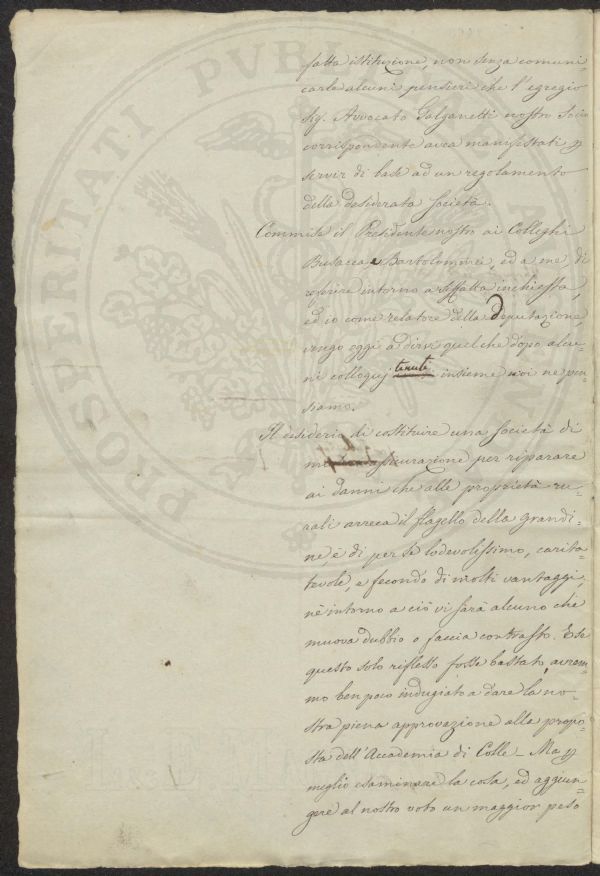 fatta istituzione, non senza comuni=
carle alcuni pensieri che l'egregio
Sig. Avvocato Galganetti nostro Socio
corrispondente avea manifestati p
servir di base ad un regolamento
della desiderata Società.
Commise il Presidente nostro ai Colleghi
Busacca, e Bartolommei, ed a me di
riferire intorno a siffatta inchiesta,
ed io come relatore della Deputazione,
vengo oggi a dirvi quel che dopo alcu=
ni colloquj tenuti insieme noi ne pen=
siamo.
Il desiderio di costituire una Società di
assicurazione per riparare
ai danni che alle proprietà ru=
rali arreca il flagello della grandi=
ne, è di per se lodevolissimo, carita=
tevole, e fecondo di molti vantaggi,
nè intorno a ciò vi sarà alcuno che
muova dubbio o faccia contrasto. E se
questo solo riflesso fosse bastato, avrem=
mo ben poco indugiato a dare la no=
stra piena approvazione alla propo=
sta dell'Accademia di Colle_ Ma p
meglio esaminare la cosa, ed aggiun=
gere al nostro voto un maggior peso
PROSPERITATI PUBLICAE